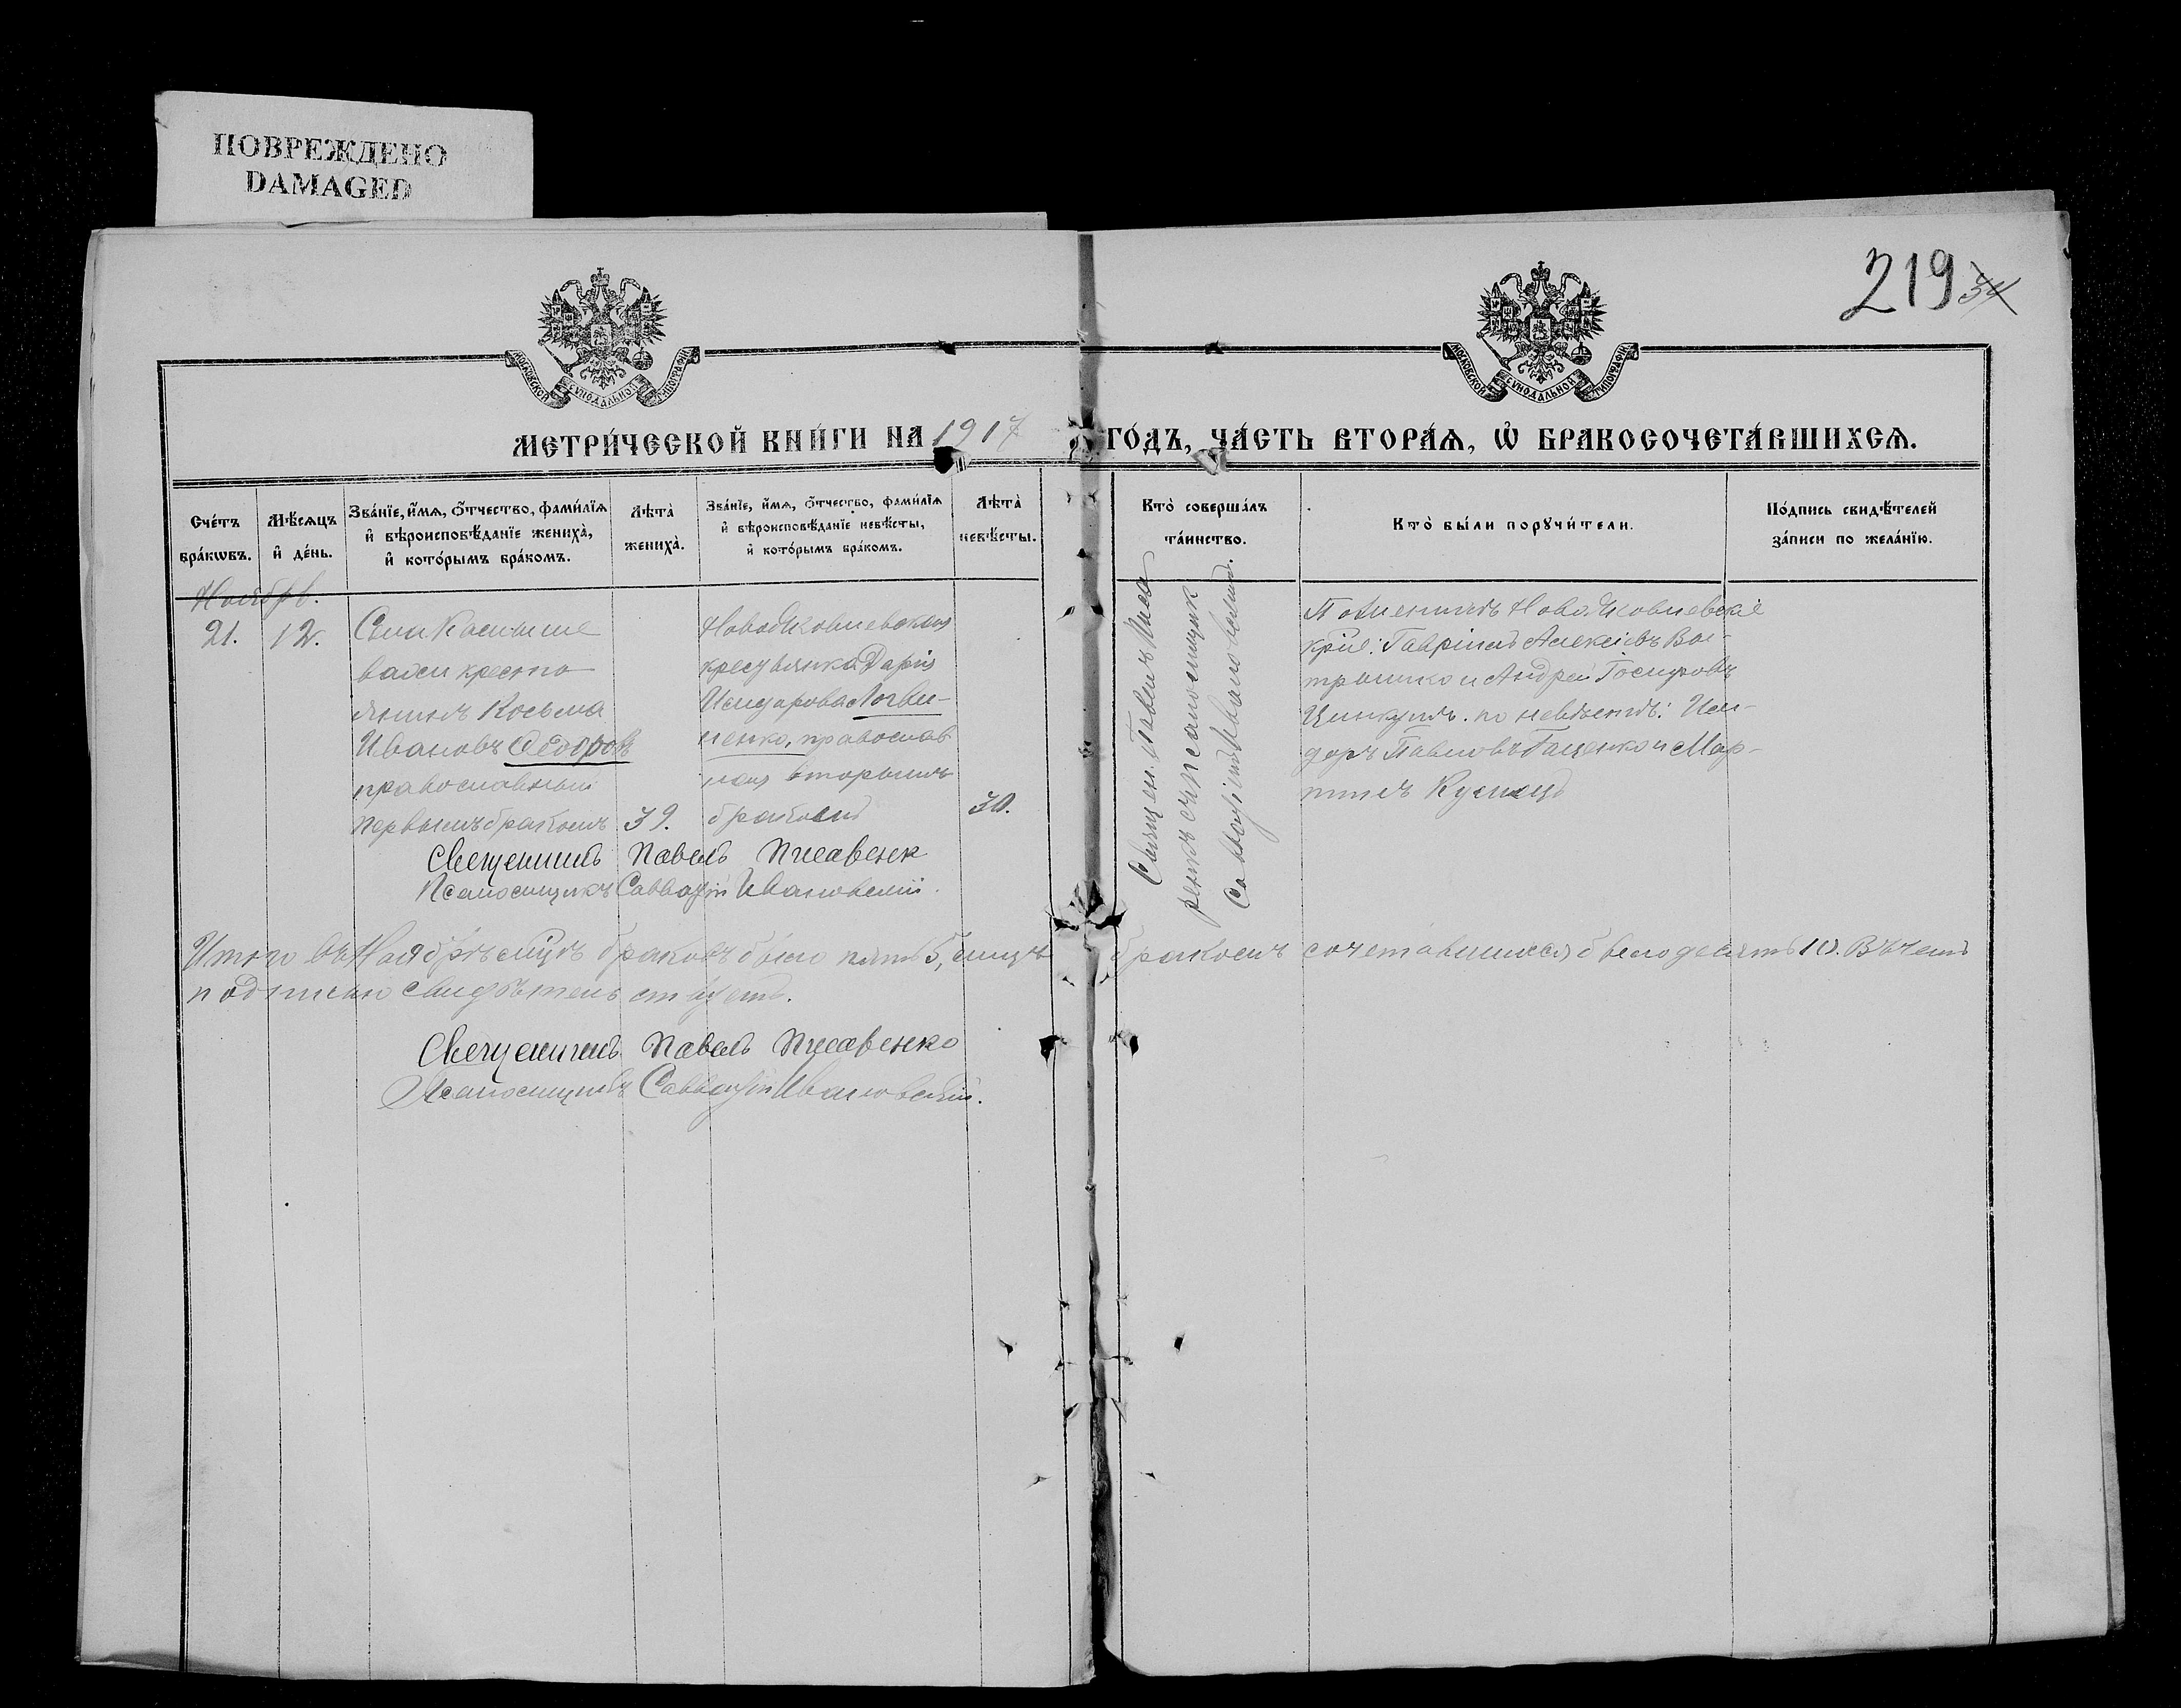 ПОВРЕЖДЕНО
DAMAGED
219 34
МОСКОВСКОЙ СУНОДАЛЬНОЙ ТИПОГРАФІИ
МОСКОВСКОЙ СУНОДАЛЬНОЙ ТИПОГРАФІИ
МЕТРИ́ЧЕСКОЙ КНИ́ГИ НА 1917 ГО́ДЪ, ЧА́СТЬ ВТОРА́Я, Ѽ БРАКОСОЧЕТА́ВШИХСЯ.
Сче́тъ
бра́кѡвъ.
Мѣ́сяцъ
и҆ де́нь.
Зва́нїе, и҆́мѧ, ѻ҆́тчество, фами́лїѧ
и҆ вѣроисповѣ́данїе жениха̀,
и҆ кото́рымъ бра́комъ.
Лѣта̀
жениха̀.
Зва́нїе, и҆́мѧ, ѻ҆́тчество, фами́лїѧ
и҆ вѣроисповѣ́данїе невѣ́сты,
и҆ кото́рымъ бра́комъ.
Лѣта̀
невѣ́сты.
Кто̀ соверша́лъ
та́инство.
Кто̀ бы́ли порꙋчи́тели.
По́дпись свидѣ́телей
за́писи по жела́нїю.
Ноябрь.
21.
12.
Села
крестья
нинъ Косьма
Ивановъ Ѳедоровъ
православный
первымъ бракомъ
39.
Ново
крестьянка Дарія
Исидорова Логви-
ненко, православ
ная вторымъ
бракомъ
30.
Священ. Павелъ Писа
ренко съ псаломщик
Савватіемъ Ивановскимъ.
По женихѣ Ново
Гавріилъ Алексіевъ
и Андрей
по невѣстѣ: Иси-
доръ Павловъ и Мар-
Священникъ Павелъ Писаренк
Псаломщикъ Савватій Ивановскій.
Итого въ Ноябрѣ мцѣ браковъ было пять 5, лицъ бракомъ сочетавшихся было десять 10. Въ чемъ
подписью свидѣтельствуемъ.
Священникъ Павелъ Писаренко
Псаломщикъ Савватій Ивановскій.